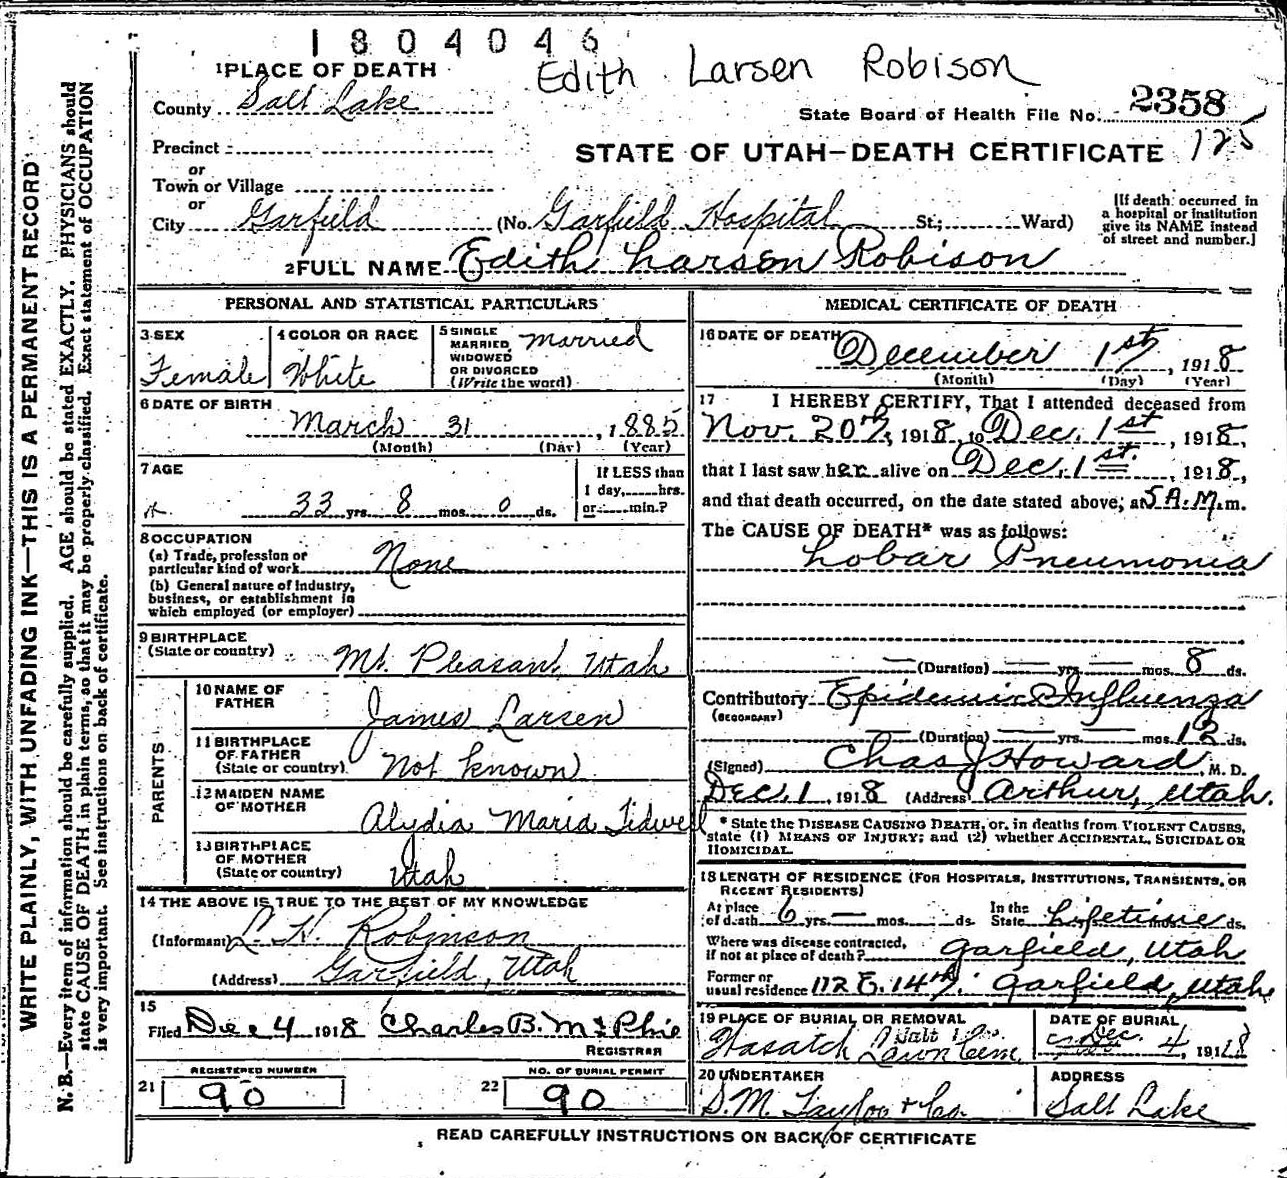 1804046
Edith Larsen Robison
1 PLACE OF DEATH
County Salt Lake
State Board of Health File No. 2358
125
Precinct
or
Town or Village
or
STATE OF UTAH—DEATH CERTIFICATE
City Garfield (No. Garfield Hospital St.; Ward)
[If death occurred in a hospital or institution give its NAME instead of street and number.]
2 FULL NAME Edith Larsen Robison
PERSONAL AND STATISTICAL PARTICULARS
3 SEX Female
4 COLOR OR RACE White
5 SINGLE MARRIED, WIDOWED OR DIVORCED (Write the word) Married
6 DATE OF BIRTH
March 31, 1885
(Month) (Day) (Year)
7 AGE
33 yrs. 8 mos. 0 ds.
If LESS than 1 day, hrs. or min.?
8 OCCUPATION
(a) Trade, profession or particular kind of work None
(b) General nature of industry, business, or establishment in which employed (or employer)
9 BIRTHPLACE
(State or country) Mt. Pleasant, Utah
PARENTS
10 NAME OF FATHER James Larsen
11 BIRTHPLACE OF FATHER (State or country) Not known
12 MAIDEN NAME OF MOTHER Alydia Maria Tidwell
13 BIRTHPLACE OF MOTHER (State or country) Utah
14 THE ABOVE IS TRUE TO THE BEST OF MY KNOWLEDGE
(Informant) L. H. Robinson
(Address) Garfield, Utah
15
Filed Dec 4 1918 Charles B. McPhie
REGISTRAR
21 REGISTERED NUMBER 90
22 NO. OF BURIAL PERMIT 90
MEDICAL CERTIFICATE OF DEATH
16 DATE OF DEATH
December 1st, 1918
(Month) (Day) (Year)
17 I HEREBY CERTIFY, That I attended deceased from
Nov. 20th, 1918, to Dec. 1st, 1918,
that I last saw her alive on Dec. 1st., 1918,
and that death occurred, on the date stated above, at 5 A.M. m.
The CAUSE OF DEATH* was as follows:
Lobar Pneumonia
(Duration) yrs. mos. 8 ds.
Contributory Epidemic Influenza
(SECONDARY)
(Duration) yrs. mos. 12 ds.
(Signed) Chas J Howard, M. D.
Dec. 1, 1918 (Address) Arthur, Utah.
* State the DISEASE CAUSING DEATH, or, in deaths from VIOLENT CAUSES,
state (1) MEANS OF INJURY; and (2) whether ACCIDENTAL, SUICIDAL OR
HOMICIDAL.
18 LENGTH OF RESIDENCE (FOR HOSPITALS, INSTITUTIONS, TRANSIENTS, OR
RECENT RESIDENTS)
At place of death 6 yrs. mos. ds. In the State Lifetime ds.
Where was disease contracted, if not at place of death? Garfield, Utah
Former or usual residence 112 E. 14th. Garfield, Utah
19 PLACE OF BURIAL OR REMOVAL
Wasatch Lawn Cem.
DATE OF BURIAL
Dec. 4, 1918
20 UNDERTAKER
S. M. Taylor & Co.
ADDRESS
Salt Lake
READ CAREFULLY INSTRUCTIONS ON BACK OF CERTIFICATE
WRITE PLAINLY, WITH UNFADING INK—THIS IS A PERMANENT RECORD
N. B.—Every item of information should be carefully supplied. AGE should be stated EXACTLY. PHYSICIANS should
state CAUSE OF DEATH in plain terms, so that it may be properly classified. Exact statement of OCCUPATION
is very important. See instructions on back of certificate.